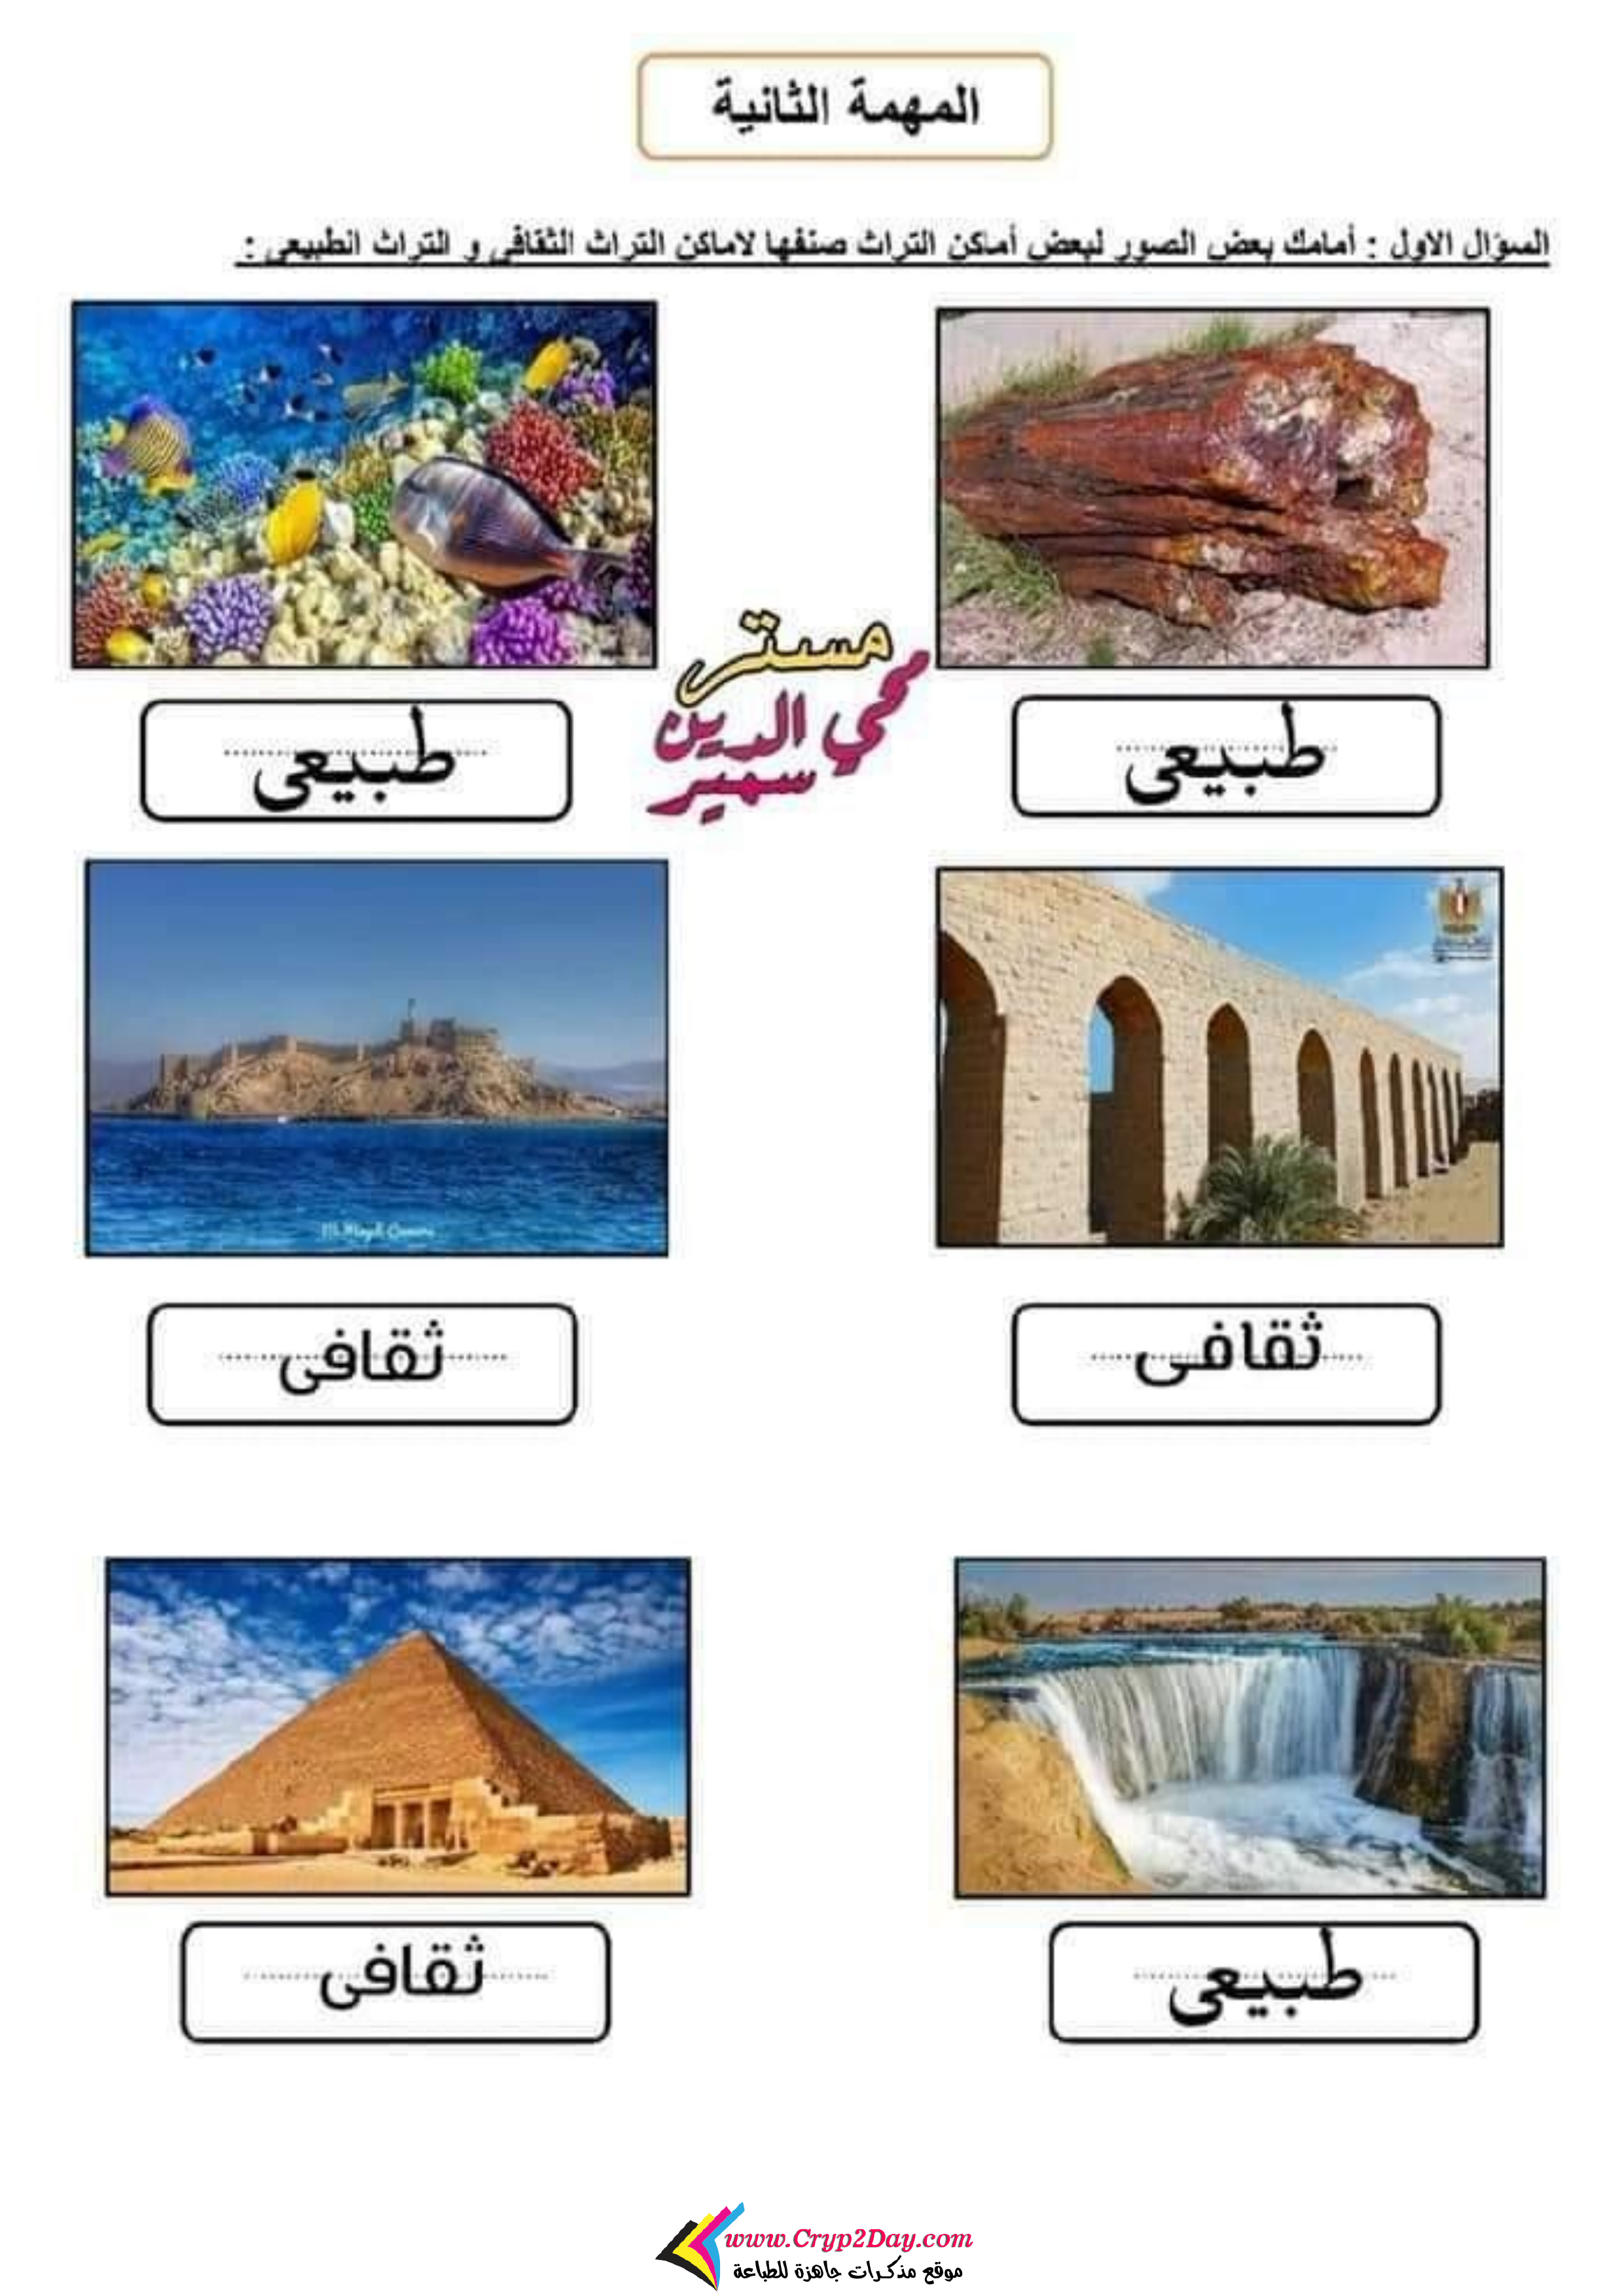 المهمة الثانية
السؤال الاول : أمامك بعض الصور لبعض أماكن التراث صنفها لاماكن التراث الثقافى و التراث الطبيعى :
طبيعى
طبيعى
مستر
محي الدين
سمير
ثقافى
ثقافى
طبيعى
ثقافى
www.Cryp2Day.com
موقع مذكرات جاهزة للطباعة